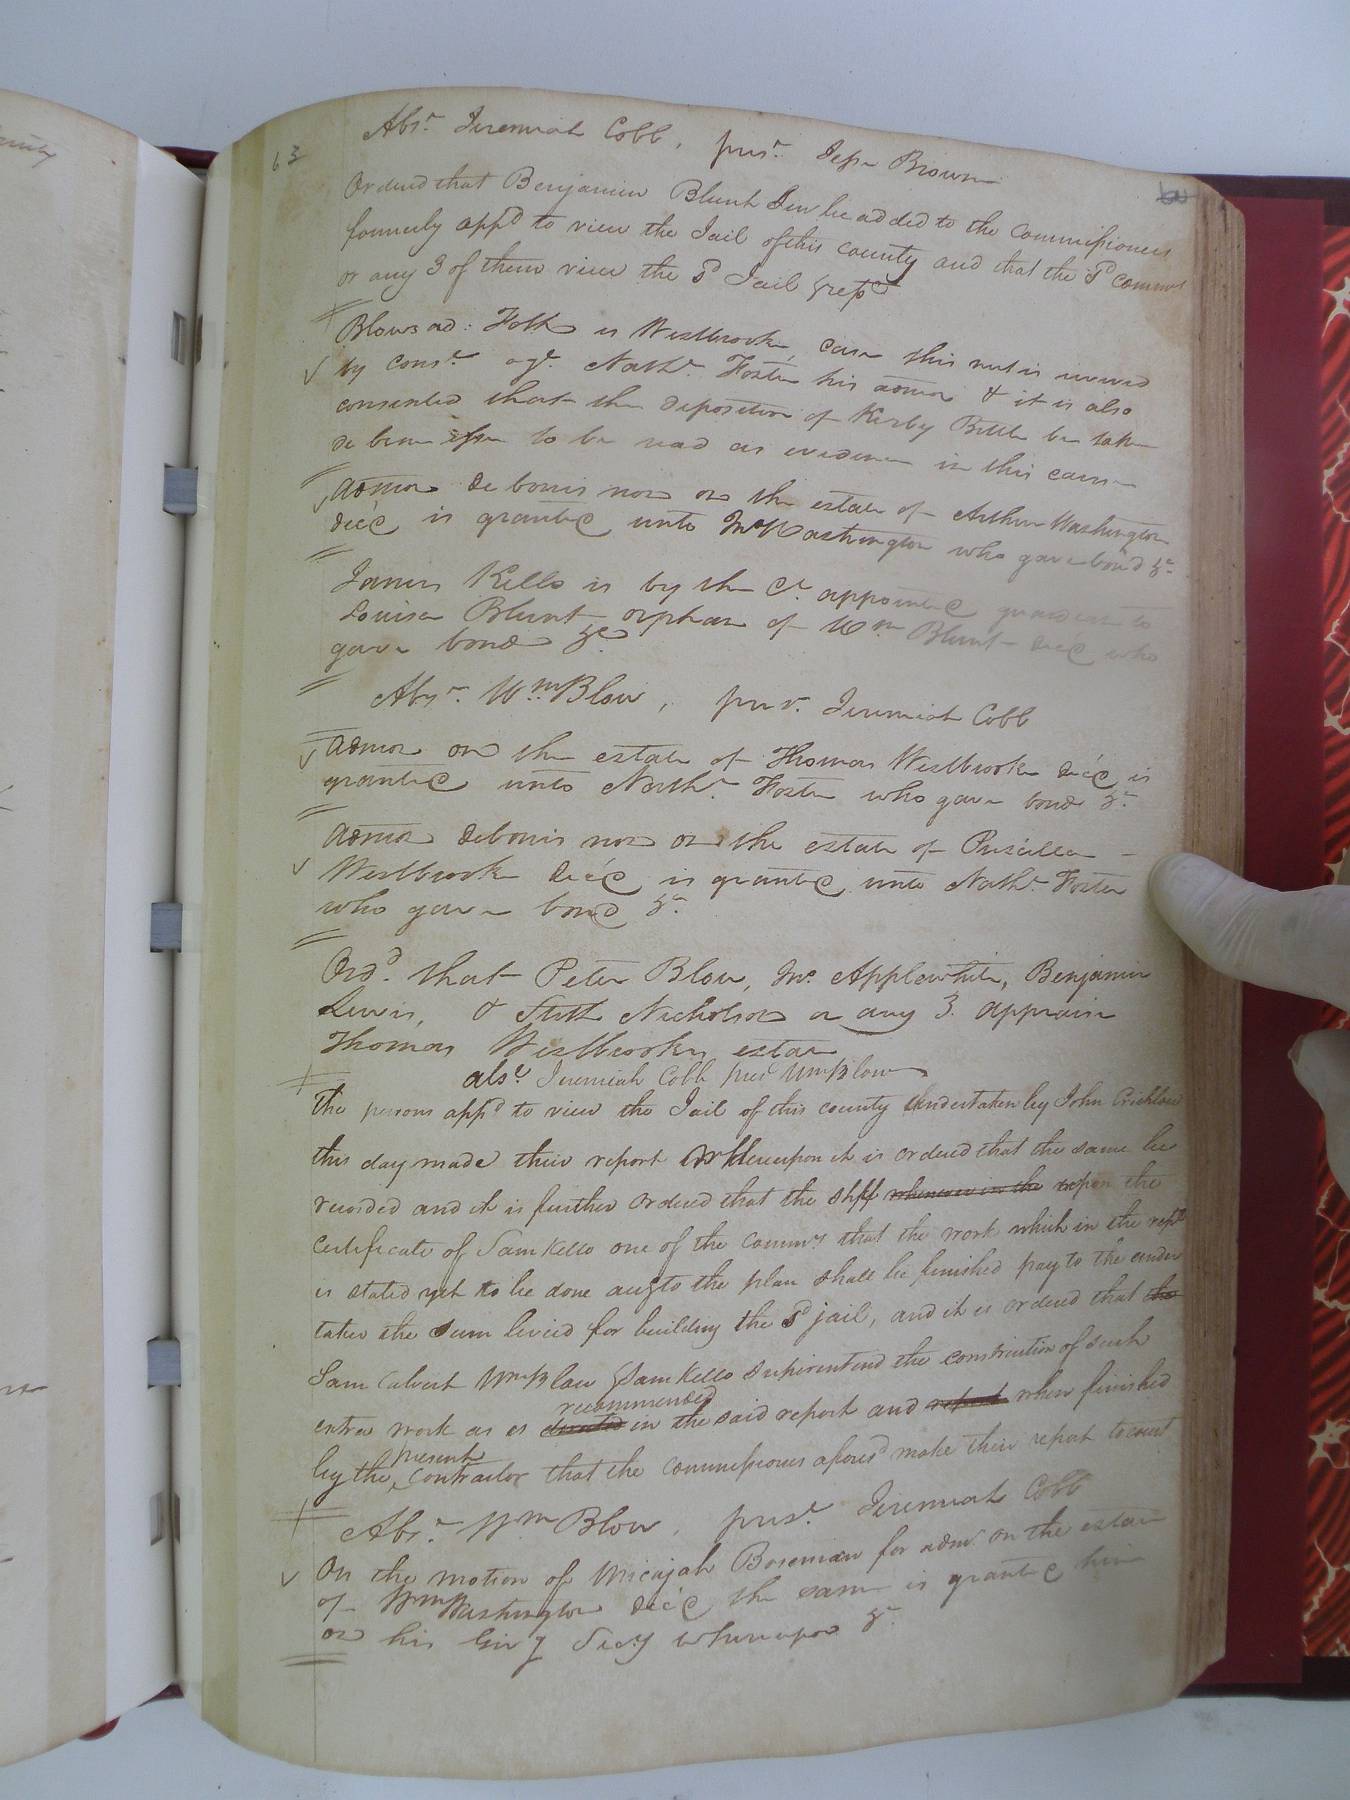 63
Absᵗ Jeremiah Cobb, presᵗ Jesse Brown
Ordered that Benjamin Blunt Sen be added to the Commissioners
formerly appᵈ to view the Jail of this county and that the sᵈ commrs
or any 3 of them view the sᵈ Jail & repᵗ
Blows ad: Folk vs Westbrook, case this suit is revived
by consᵗ agᵗ Nathˡ Foster his admor & it is also
consented that the deposition of Kirby Bittle be taken
de bene esse to be read as evidence in this cause
Admor de bonis non on the estate of Arthur Washington
dec'd is granted unto Jnᵒ Washington who gave bond &c
James Kello is by the Cᵗ appointed guardian to
Louisa Blunt orphan of Wᵐ Blunt dec'd who
gave bond &c
Absᵗ Wᵐ Blow, presᵗ Jeremiah Cobb
Admor on the estate of Thomas Westbrook dec'd is
granted unto Nathˡ Foster who gave bond &c
Admor debonis non on the estate of Priscilla
Westbrook dec'd is granted unto Nathˡ Foster
who gave bond &c
Ordᵈ that Peter Blow, Jnᵒ Applewhite, Benjamin
Lewis, & Stith Nicholson or any 3 appraise
Thomas Westbrooks estate
absᵗ Jeremiah Cobb presᵗ Wm Blow
The persons appᵈ to view the Jail of this county undertaken by John Crichlow
this day made their report Whereupon it is ordered that the same be
recorded and it is further ordered that the shff whenever in the upon the
certificate of Sam Kello one of the commrs that the work which in the repᵗ
is stated yet to be done acᵍ to the plan shall be finished pay to the under
taker the sum levied for building the sᵈ jail, and it is ordered that the
Sam Calvert Wm Blow & Sam Kello superintend the construction of such
recommended
extra work as is directed in the said report and report when finished
present
by the contractor that the commissioners aforesᵈ make their report to court
Absᵗ Wᵐ Blow, presᵗ Jeremiah Cobb
On the motion of Micajah Boseman for admᵒⁿ on the estate
of Wm Washington dec'd the same is granted him
on his giving Secy whereupon &c